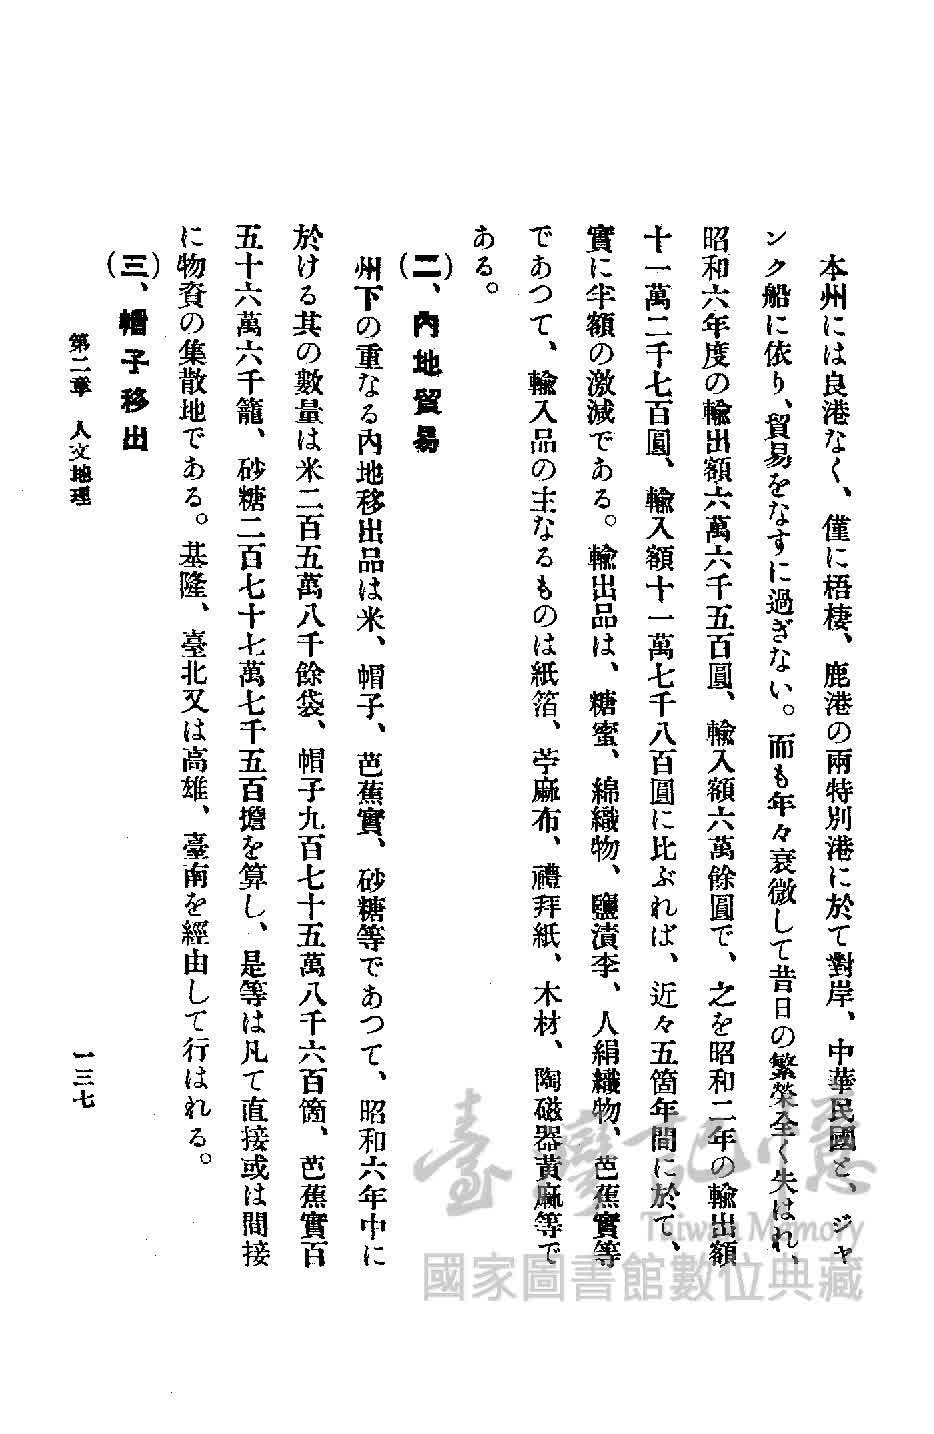 本州には良港なく、僅に梧棲、鹿港の兩特別港に於て對岸、中華民國と、ジャ
ンク船に依り、貿易をなすに過ぎない。而も年々衰微して昔日の繁榮全く失はれ、
昭和六年度の輸出額六萬六千五百圓、輸入額六萬餘圓で、之を昭和二年の輸出額
十一萬二千七百圓、輸入額十一萬七千八百圓に比ぶれば、近々五箇年間に於て、
實に半額の激減である。輸出品は、糖蜜、綿織物、鹽漬李、人絹織物、芭蕉實等
であつて、輸入品の主なるものは紙箔、苧麻布、禮拜紙、木材、陶磁器黃麻等で
ある。
(二)、內地貿易
州下の重なる內地移出品は米、帽子、芭蕉實、砂糖等であつて、昭和六年中に
於ける其の數量は米二百五萬八千餘袋、帽子九百七十五萬八千六百箇、芭蕉實百
五十六萬六千籠、砂糖二百七十七萬七千五百擔を算し、是等は凡て直接或は間接
に物資の集散地である。基隆、臺北又は高雄、臺南を經由して行はれる。
(三)、帽子移出
第二章 人文地理
一三七
臺灣記憶
Taiwan Memory
國家圖書館數位典藏